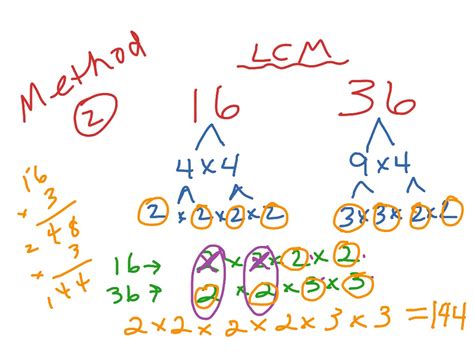 Method
2
LCM
16 36
4 x 4 9 x 4
2 x 2 x 2 x 2 3 x 3 x 2 x 2
16
x 3
48
2 x 3
144
16 → 2 x 2 x 2 x 2
36 → 2 x 2 x 3 x 3
2 x 2 x 2 x 2 x 3 x 3 = 144